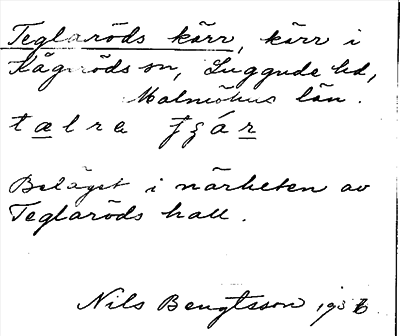 Teglaröds kärr, kärr i
Kågeröds sn, Luggude hd,
Malmöhus län.
tælra
Beläget i närheten av
Teglaröds hall.
Nils Bengtsson 193